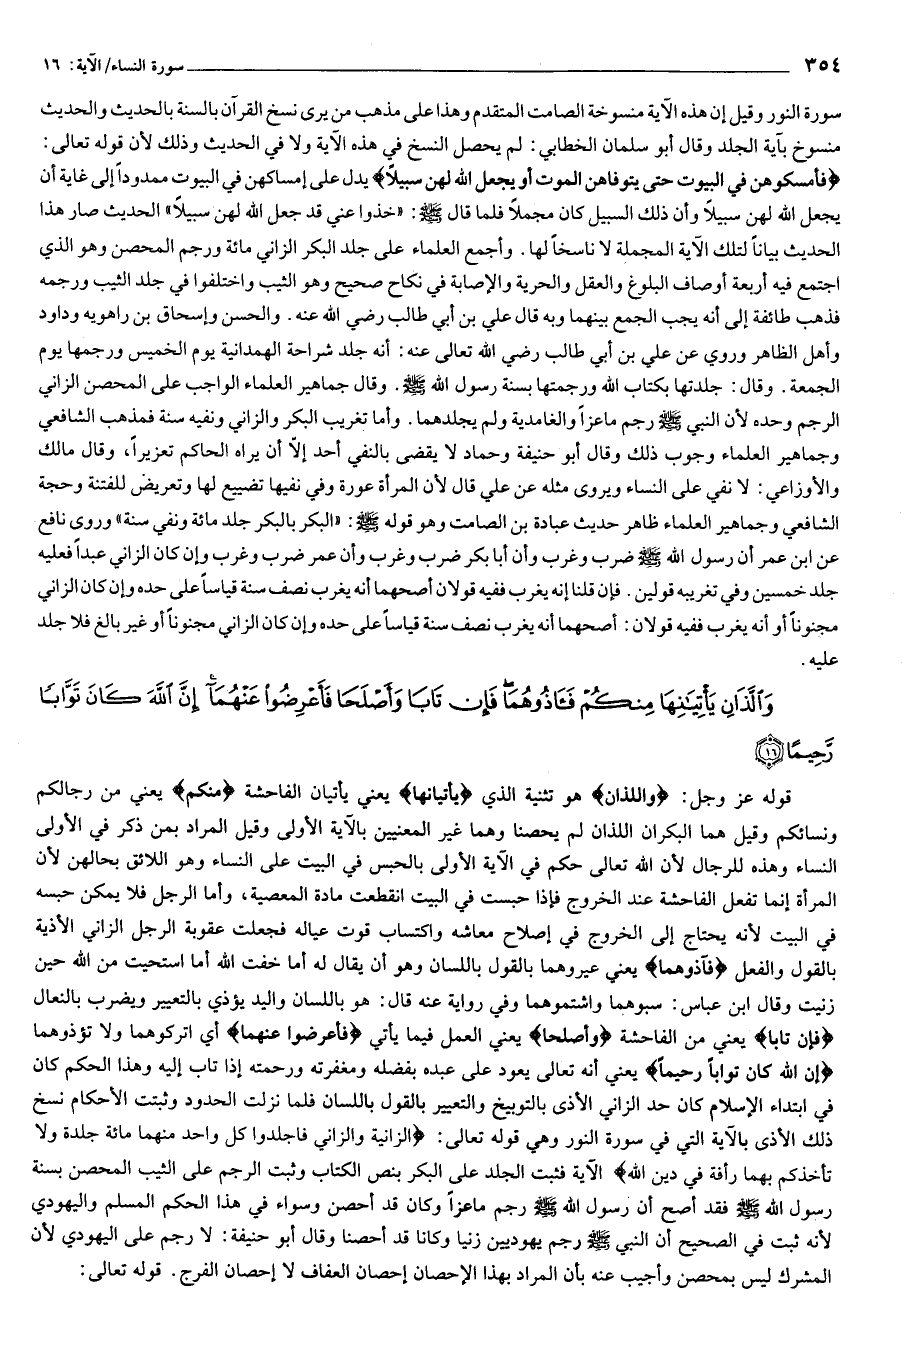 ٣٥٤ سورة النساء/ الآية: ١٦
سورة النور وقيل إن هذه الآية منسوخة الصامت المتقدم وهذا على مذهب من يرى نسخ القرآن بالسنة بالحديث والحديث
منسوخ بآية الجلد وقال أبو سلمان الخطابي: لم يحصل النسخ في هذه الآية ولا في الحديث وذلك لأن قوله تعالى:
﴿فأمسكوهن في البيوت حتى يتوفاهن الموت أو يجعل الله لهن سبيلاً﴾ يدل على إمساكهن في البيوت ممدوداً إلى غاية أن
يجعل الله لهن سبيلاً وأن ذلك السبيل كان مجملاً فلما قال ﷺ: «خذوا عني قد جعل الله لهن سبيلاً» الحديث صار هذا
الحديث بياناً لتلك الآية المجملة لا ناسخاً لها. وأجمع العلماء على جلد البكر الزاني مائة ورجم المحصن وهو الذي
اجتمع فيه أربعة أوصاف البلوغ والعقل والحرية والإصابة في نكاح صحيح وهو الثيب واختلفوا في جلد الثيب ورجمه
فذهب طائفة إلى أنه يجب الجمع بينهما وبه قال علي بن أبي طالب رضي الله عنه. والحسن وإسحاق بن راهويه وداود
وأهل الظاهر وروي عن علي بن أبي طالب رضي الله تعالى عنه: أنه جلد شراحة الهمدانية يوم الخميس ورجمها يوم
الجمعة. وقال: جلدتها بكتاب الله ورجمتها بسنة رسول الله ﷺ. وقال جماهير العلماء الواجب على المحصن الزاني
الرجم وحده لأن النبي ﷺ رجم ماعزاً والغامدية ولم يجلدهما. وأما تغريب البكر والزاني ونفيه سنة فمذهب الشافعي
وجماهير العلماء وجوب ذلك وقال أبو حنيفة وحماد لا يقضى بالنفي أحد إلاّ أن يراه الحاكم تعزيراً، وقال مالك
والأوزاعي: لا نفي على النساء ويروى مثله عن علي قال لأن المرأة عورة وفي نفيها تضييع لها وتعريض للفتنة وحجة
الشافعي وجماهير العلماء ظاهر حديث عبادة بن الصامت وهو قوله ﷺ: «البكر بالبكر جلد مائة ونفي سنة» وروى نافع
عن ابن عمر أن رسول الله ﷺ ضرب وغرب وأن أبا بكر ضرب وغرب وأن عمر ضرب وغرب وإن كان الزاني عبداً فعليه
جلد خمسين وفي تغريبه قولين. فإن قلنا إنه يغرب ففيه قولان أصحهما أنه يغرب نصف سنة قياساً على حده وإن كان الزاني
مجنوناً أو أنه يغرب ففيه قولان: أصحهما أنه يغرب نصف سنة قياساً على حده وإن كان الزاني مجنوناً أو غير بالغ فلا جلد
عليه.
وَٱلَّذَانِ يَأْتِيَٰنِهَا مِنكُمْ فَـَٔاذُوهُمَا ۖ فَإِن تَابَا وَأَصْلَحَا فَأَعْرِضُوا۟ عَنْهُمَآ ۗ إِنَّ ٱللَّهَ كَانَ تَوَّابًا
رَّحِيمًا ١٦
قوله عز وجل: ﴿واللذان﴾ هو تثنية الذي ﴿يأتيانها﴾ يعني يأتيان الفاحشة ﴿منكم﴾ يعني من رجالكم
ونسائكم وقيل هما البكران اللذان لم يحصنا وهما غير المعنيين بالآية الأولى وقيل المراد بمن ذكر في الأولى
النساء وهذه للرجال لأن الله تعالى حكم في الآية الأولى بالحبس في البيت على النساء وهو اللائق بحالهن لأن
المرأة إنما تفعل الفاحشة عند الخروج فإذا حبست في البيت انقطعت مادة المعصية، وأما الرجل فلا يمكن حبسه
في البيت لأنه يحتاج إلى الخروج في إصلاح معاشه واكتساب قوت عياله فجعلت عقوبة الرجل الزاني الأذية
بالقول والفعل ﴿فآذوهما﴾ يعني عيروهما بالقول باللسان وهو أن يقال له أما خفت الله أما استحيت من الله حين
زنيت وقال ابن عباس: سبوهما واشتموهما وفي رواية عنه قال: هو باللسان واليد يؤذي بالتعيير ويضرب بالنعال
﴿فإن تابا﴾ يعني من الفاحشة ﴿وأصلحا﴾ يعني العمل فيما يأتي ﴿فأعرضوا عنهما﴾ أي اتركوهما ولا تؤذوهما
﴿إن الله كان تواباً رحيماً﴾ يعني أنه تعالى يعود على عبده بفضله ومغفرته ورحمته إذا تاب إليه وهذا الحكم كان
في ابتداء الإسلام كان حد الزاني الأذى بالتوبيخ والتعيير بالقول باللسان فلما نزلت الحدود وثبتت الأحكام نسخ
ذلك الأذى بالآية التي في سورة النور وهي قوله تعالى: ﴿الزانية والزاني فاجلدوا كل واحد منهما مائة جلدة ولا
تأخذكم بهما رأفة في دين الله﴾ الآية فثبت الجلد على البكر بنص الكتاب وثبت الرجم على الثيب المحصن بسنة
رسول الله ﷺ فقد أصح أن رسول الله ﷺ رجم ماعزاً وكان قد أحصن وسواء في هذا الحكم المسلم واليهودي
لأنه ثبت في الصحيح أن النبي ﷺ رجم يهوديين زنيا وكانا قد أحصنا وقال أبو حنيفة: لا رجم على اليهودي لأن
المشرك ليس بمحصن وأجيب عنه بأن المراد بهذا الإحصان إحصان العفاف لا إحصان الفرج. قوله تعالى: